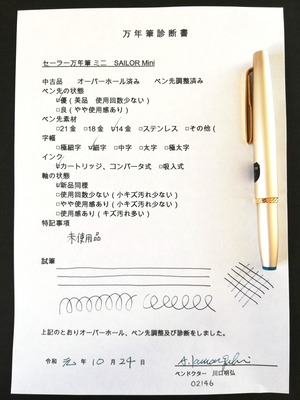 万年筆診断書
セーラー万年筆 ミニ　SAILOR Mini
中古品　オーバーホール済み　ペン先調整済み
ペン先の状態
☑優（美品　使用回数少ない）
□良（やや使用感あり）
ペン先素材
□21金　□18金　☑14金　□ステンレス　□その他（
字幅
□極細字　☑細字　□中字　□太字　□極太字
インク
☑カートリッジ、コンバータ式　□吸入式
軸の状態
☑新品同様
□使用感少ない（小キズ汚れ少ない）
□やや使用感あり（小キズ汚れ少ない）
□使用感あり（キズ汚れ多い）
特記事項
未使用品
試筆
上記のとおりオーバーホール、ペン先調整及び診断をしました。
令和 元 年 10 月 24 日
ペンドクター　川口明弘
02146